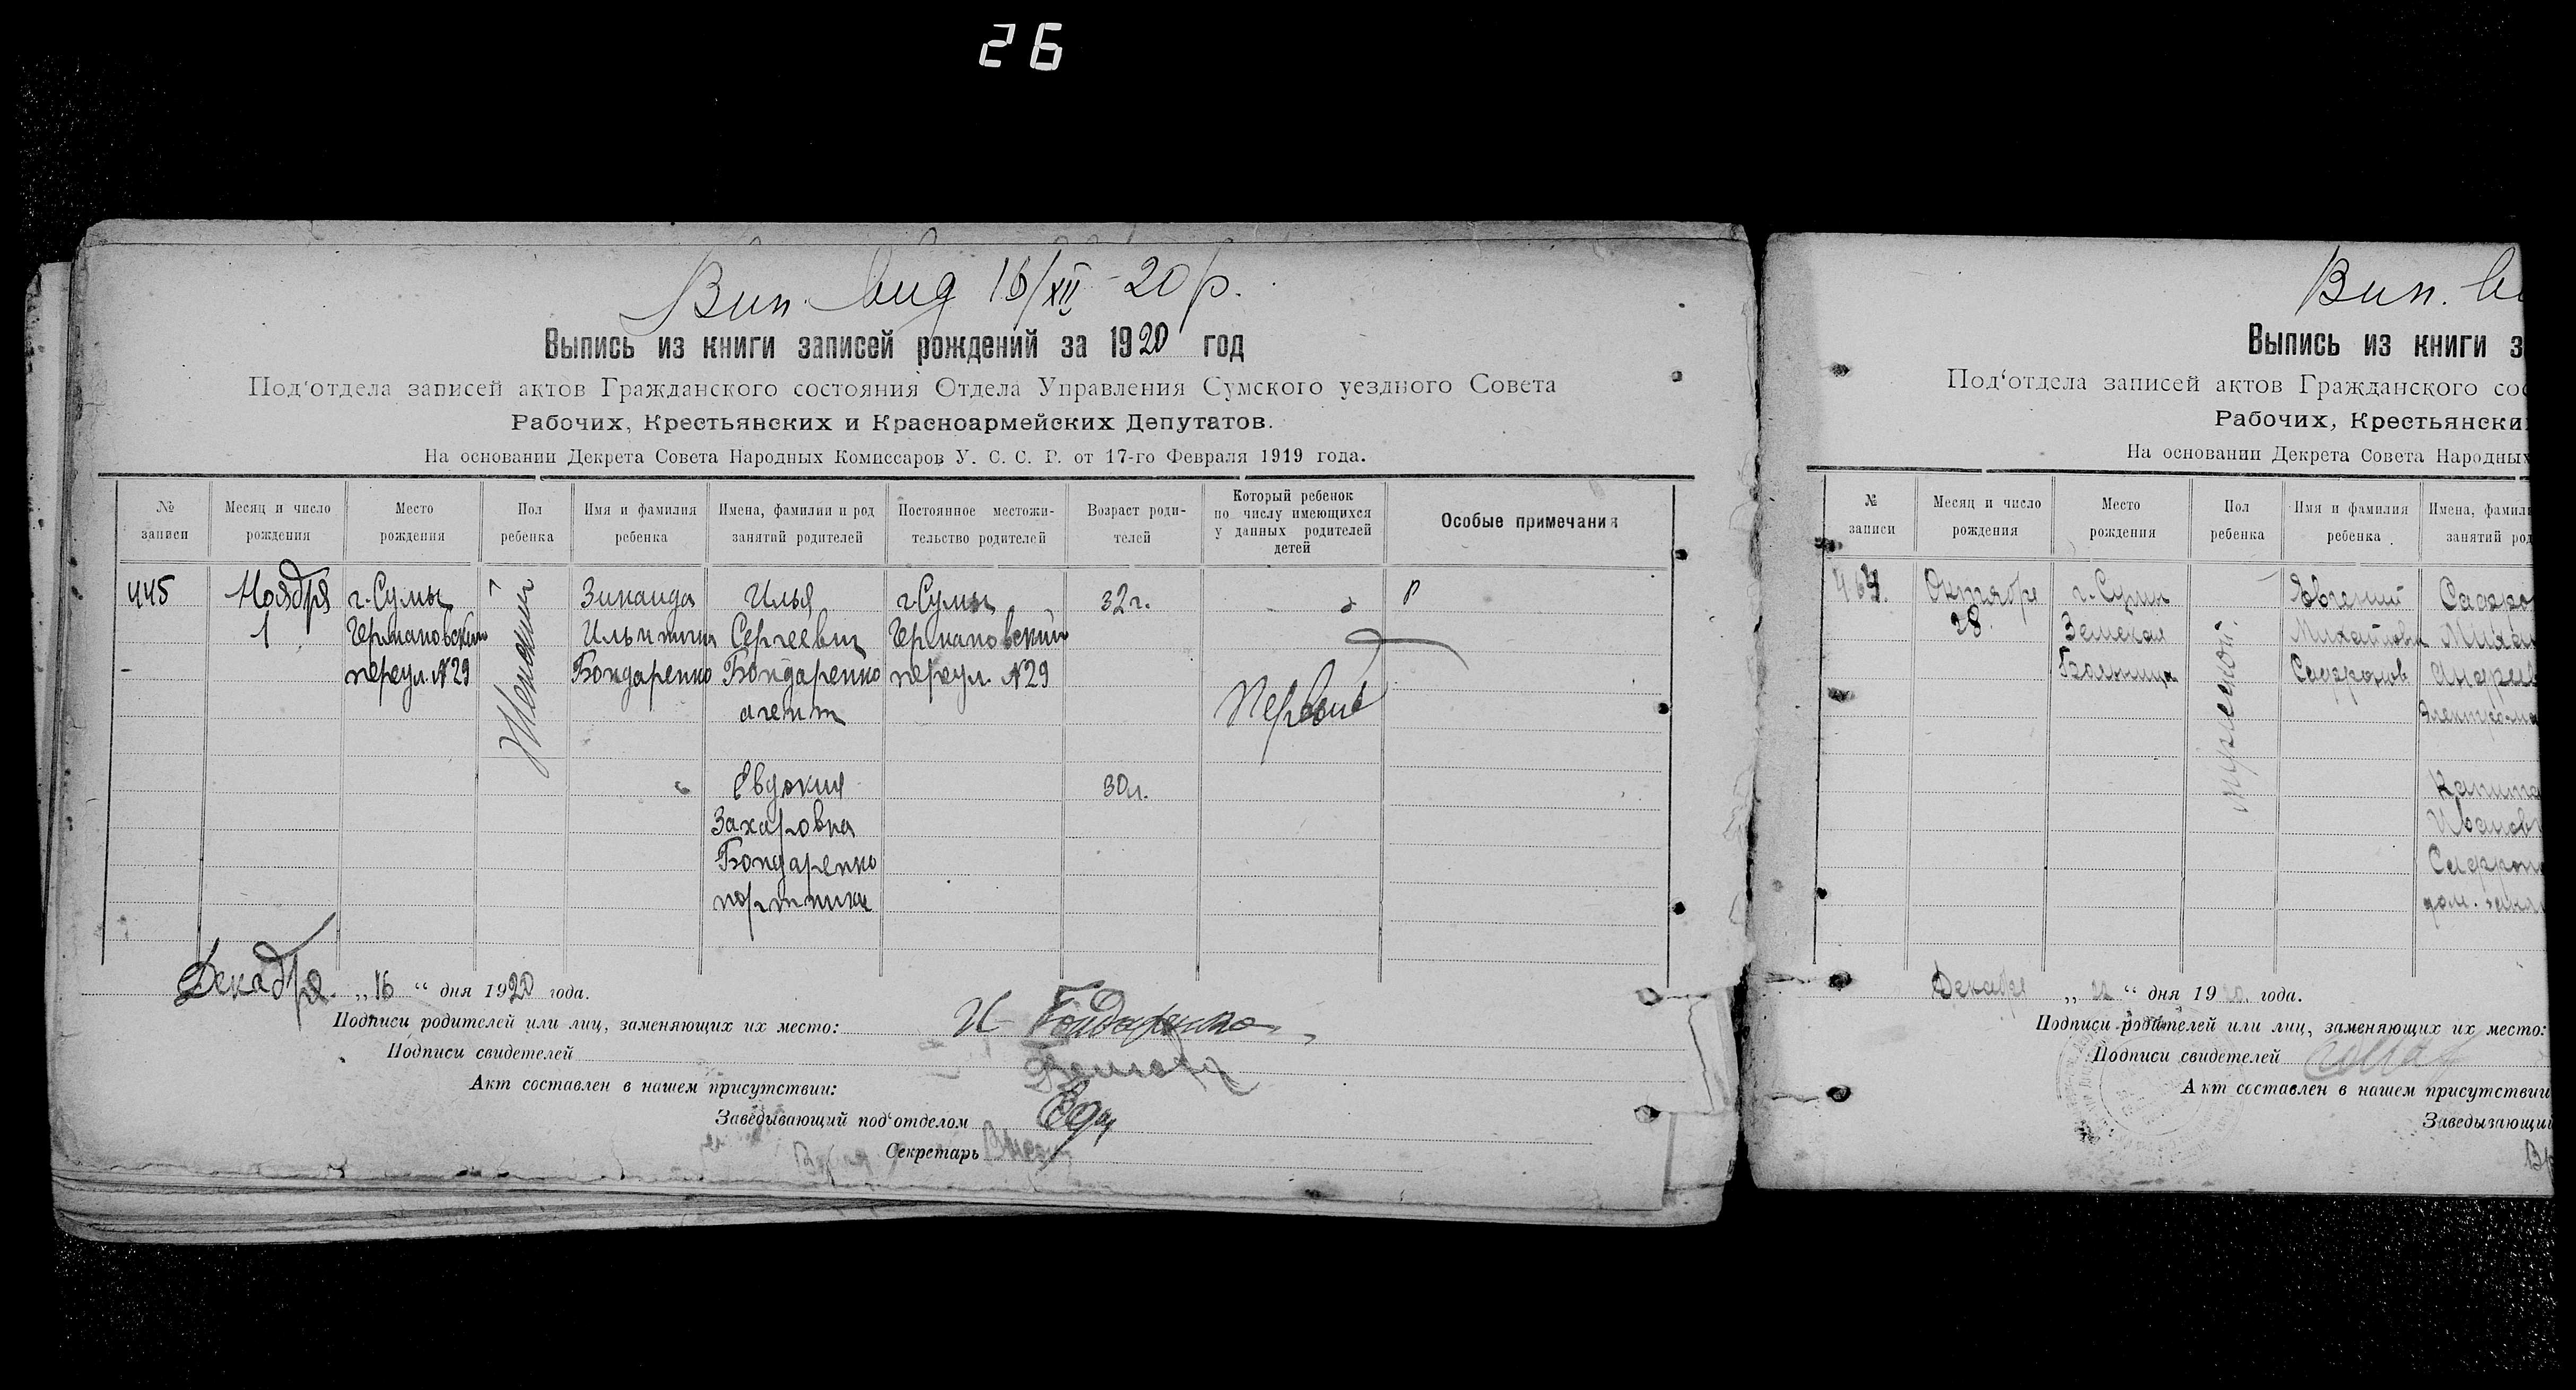 26
Вип. вид 16/XII - 20 р.
Выпись из книги записей рождений за 1920 год
Под‘отдела записей актов Гражданского состояния Отдела Управления Сумского уездного Совета
Рабочих, Крестьянских и Красноармейских Депутатов.
На основании Декрета Совета Народных Комиссаров У. С. С. Р. от 17-го Февраля 1919 года.
№ записи
Месяц и число рождения
Место рождения
Пол ребенка
Имя и фамилия ребенка
Имена, фамилии и род занятий родителей
Постоянное местожи- тельство родителей
Возраст роди- телей
Который ребенок по числу имеющихся у данных родителей детей
Особые примечания
445
Ноября
1
г. Сумы
Германовский
переул. №29
Женский
Зинаида
Ильинична
Бондаренко
Илья
Сергеевич
Бондаренко
агент
г. Сумы
Германовский
переул. №29
32 г.
Первый
Евдокия
Захаровна
Бондаренко
портниха
30 л.
Декабря „16“ дня 1920 года.
Подписи родителей или лиц, заменяющих их место: И Бондаренко
Подписи свидетелей
Акт составлен в нашем присутствии:
Заведывающий под‘отделом
Секретарь
Вип. в
Выпись из книги з
Под‘отдела записей актов Гражданского сос
Рабочих, Крестьянски
На основании Декрета Совета Народных
№ записи
Месяц и число рождения
Место рождения
Пол ребенка
Имя и фамилия ребенка
Имена, фамил
занятий род
Октября
28.
г. Сумы
Земская
Больница
мужской
Евгений
Михайлович
Сафронов
Сафро
Миха
Андрее
Капито
Иванов
Сафрон
дом. занят
Декабря „ “ дня 19 года.
Подписи родителей или лиц, заменяющих их место:
Подписи свидетелей
Акт составлен в нашем присутствии
Заведывающий